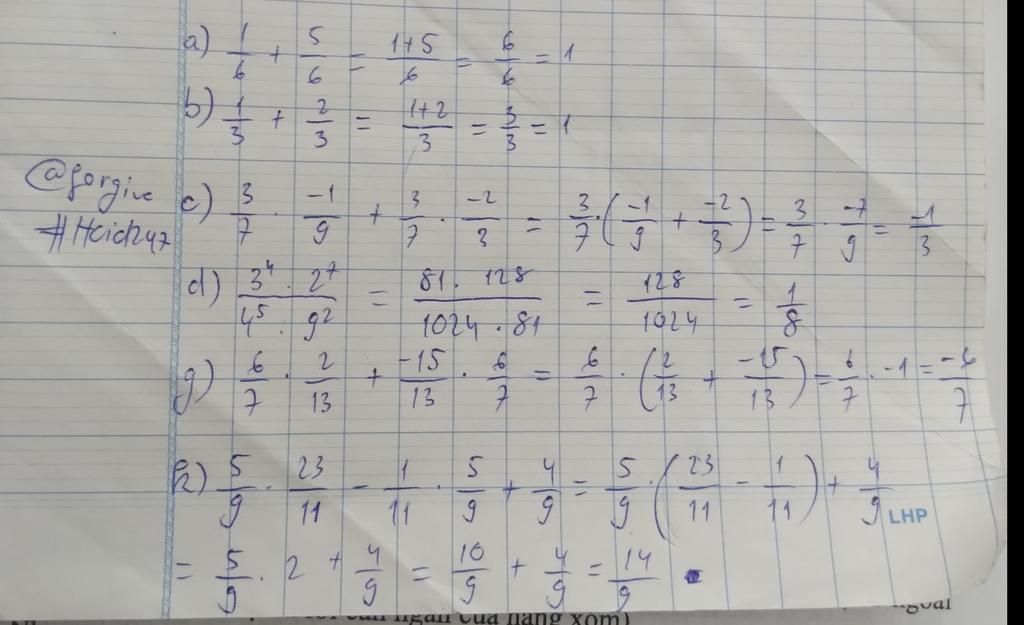 a) 1/6 + 5/6 = 1+5/6 = 6/6 = 1
b) 1/3 + 2/3 = 1+2/3 = 3/3 = 1
@forgive
#Hcid247
c) 3/7 . -1/9 + 3/7 . -2/3 = 3/7 . (-1/9 + -2/3) = 3/7 . -7/9 = -1/3
d) 3⁴ . 2⁷ / 4⁵ . 9² = 81 . 128 / 1024 . 81 = 128/1024 = 1/8
g) 6/7 . 2/13 + -15/13 . 6/7 = 6/7 . (2/13 + -15/13) = 6/7 . -1 = -6/7
h) 5/9 . 23/11 - 1/11 . 5/9 + 4/9 = 5/9 . (23/11 - 1/11) + 4/9
LHP
= 5/9 . 2 + 4/9 = 10/9 + 4/9 = 14/9 .
của hàng xóm)